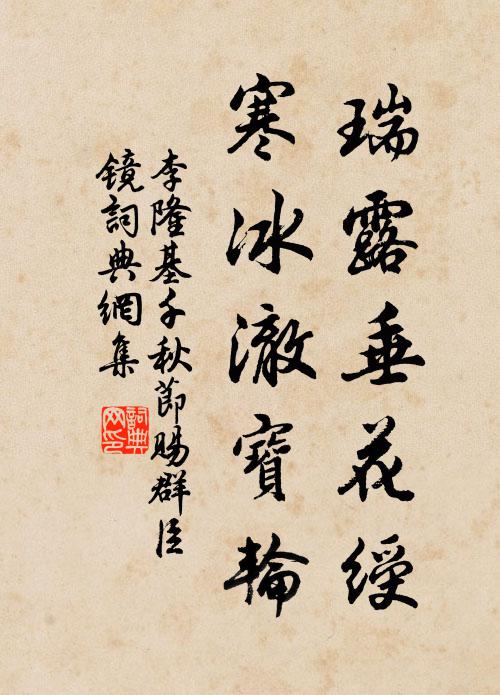 瑞露垂花綬
寒冰澈寶輪
李隆基千秋節賜群臣
鏡詞典網集
詞典
网印